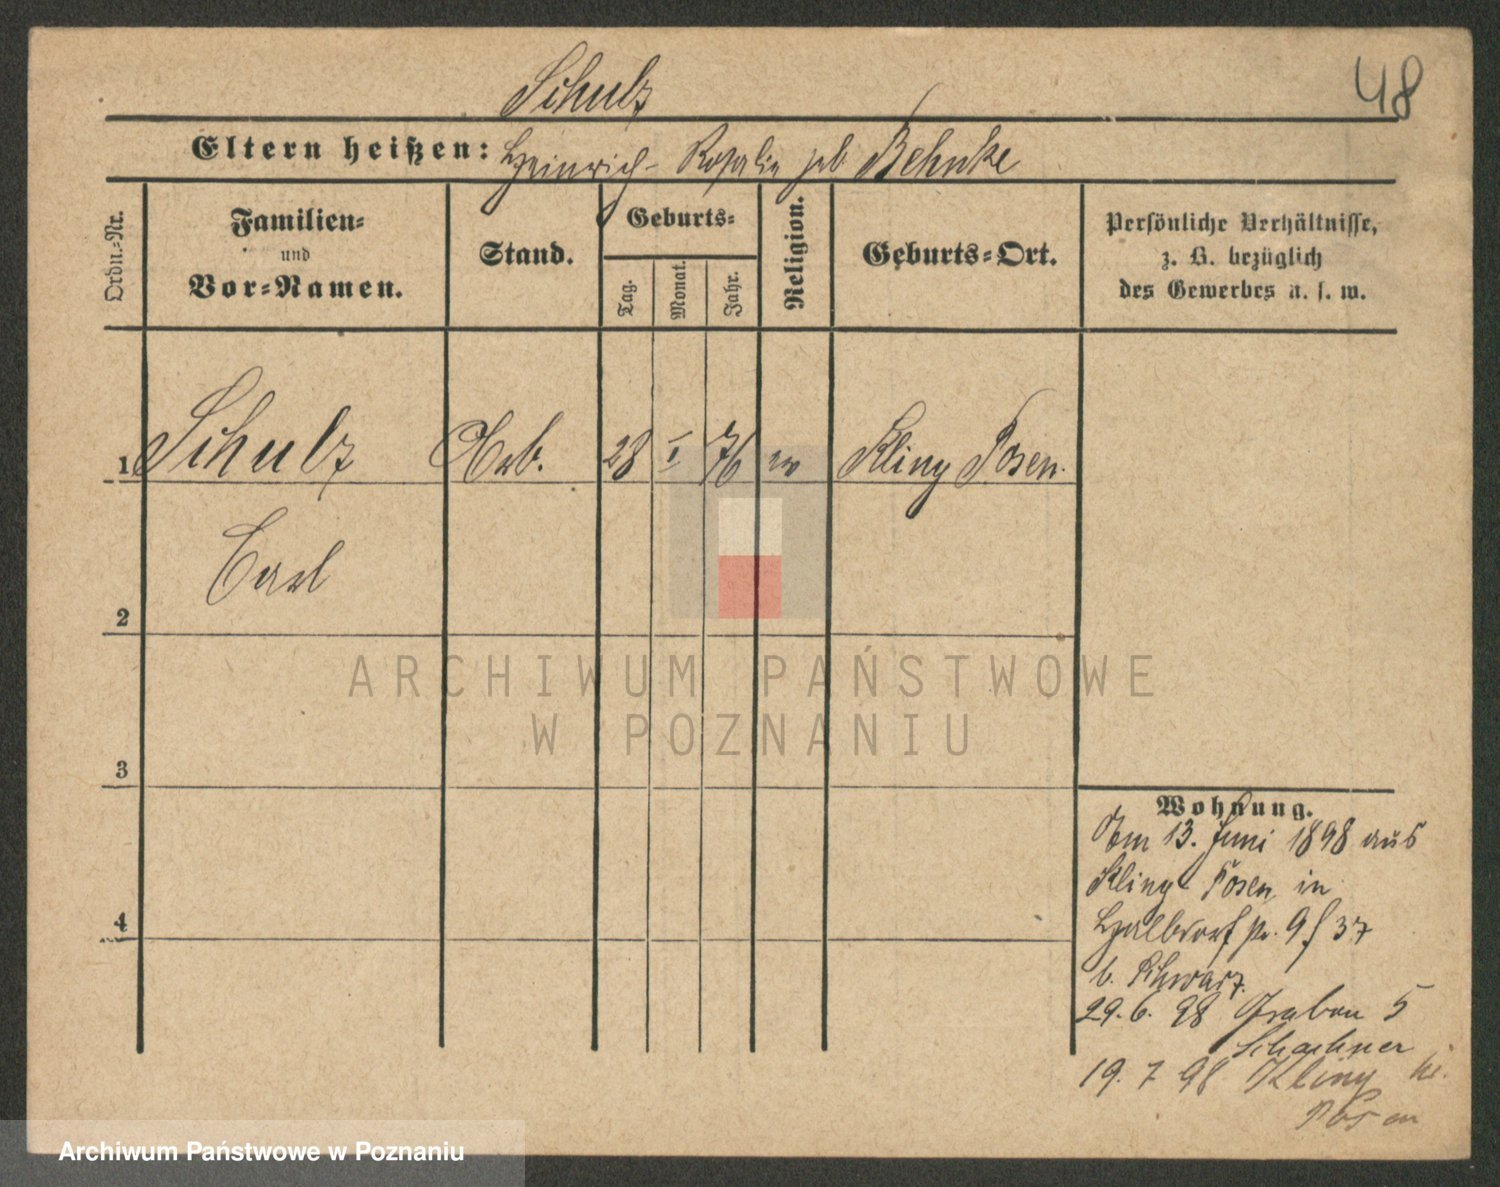 48
Schulz
Eltern heißen: Heinrich - Rosalie geb Behnke
Ordn.-Nr.
Familien-
und
Vor-Namen.
Stand.
Geburts-
Tag.
Monat.
Jahr.
Religion.
Geburts-Ort.
Persönliche Verhältnisse,
z. B. bezüglich
des Gewerbes u. s. w.
1 Schulz Arb. 28 I 76 ev Kliny Posen.
Carl
2
3
4
Wohnung.
Am 13. Juni 1898 aus
Kliny Posen in
Halbdorf 37
b. Schwarz.
29. 6. 98 Graben 5
19. 7 98 Kliny
Posen
ARCHIWUM PAŃSTWOWE
W POZNANIU
Archiwum Państwowe w Poznaniu